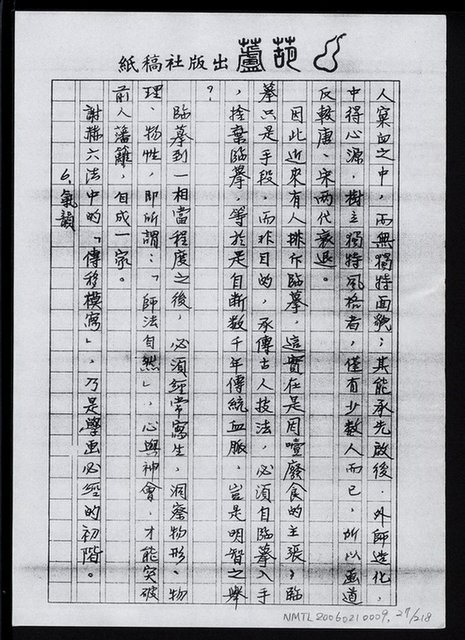 葫蘆出版社稿紙
人窠臼之中，而無獨特面貌；其能承先啟後，外師造化，
中得心源，樹立獨特風格者，僅有少數人而已，所以畫道
反較唐、宋兩代衰退。
因此近來有人排斥臨摹，這實在是因噎廢食的主張；臨
摹只是手段，而非目的，承傳古人技法，必須自臨摹入手
，捨棄臨摹，等於是自斷数千年傳統血脈，豈是明智之舉
？
臨摹到一相當程度之後，必須經常寫生，洞察物形、物
理、物性，即所謂：「師法自然」，心與神會，才能突破
前人藩籬，自成一家。
謝赫六法中的「傳移模寫」，乃是學画必經的初階。
6.氣韻
NMTL20060210009. 27/218